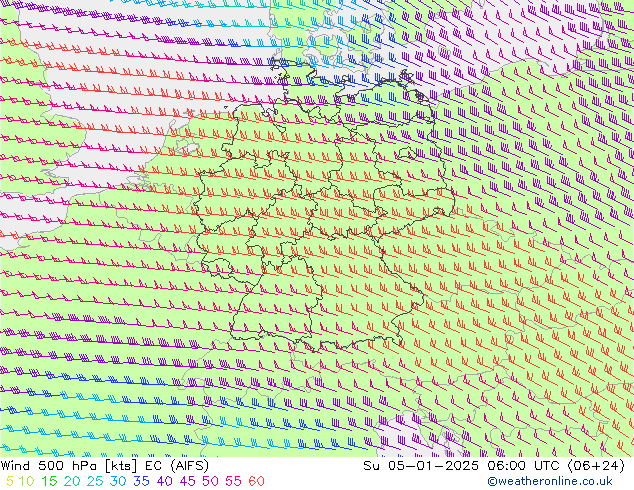 Wind 500 hPa [kts] EC (AIFS) Su 05-01-2025 06:00 UTC (06+24)
5 10 15 20 25 30 35 40 45 50 55 60 ©weatheronline.co.uk